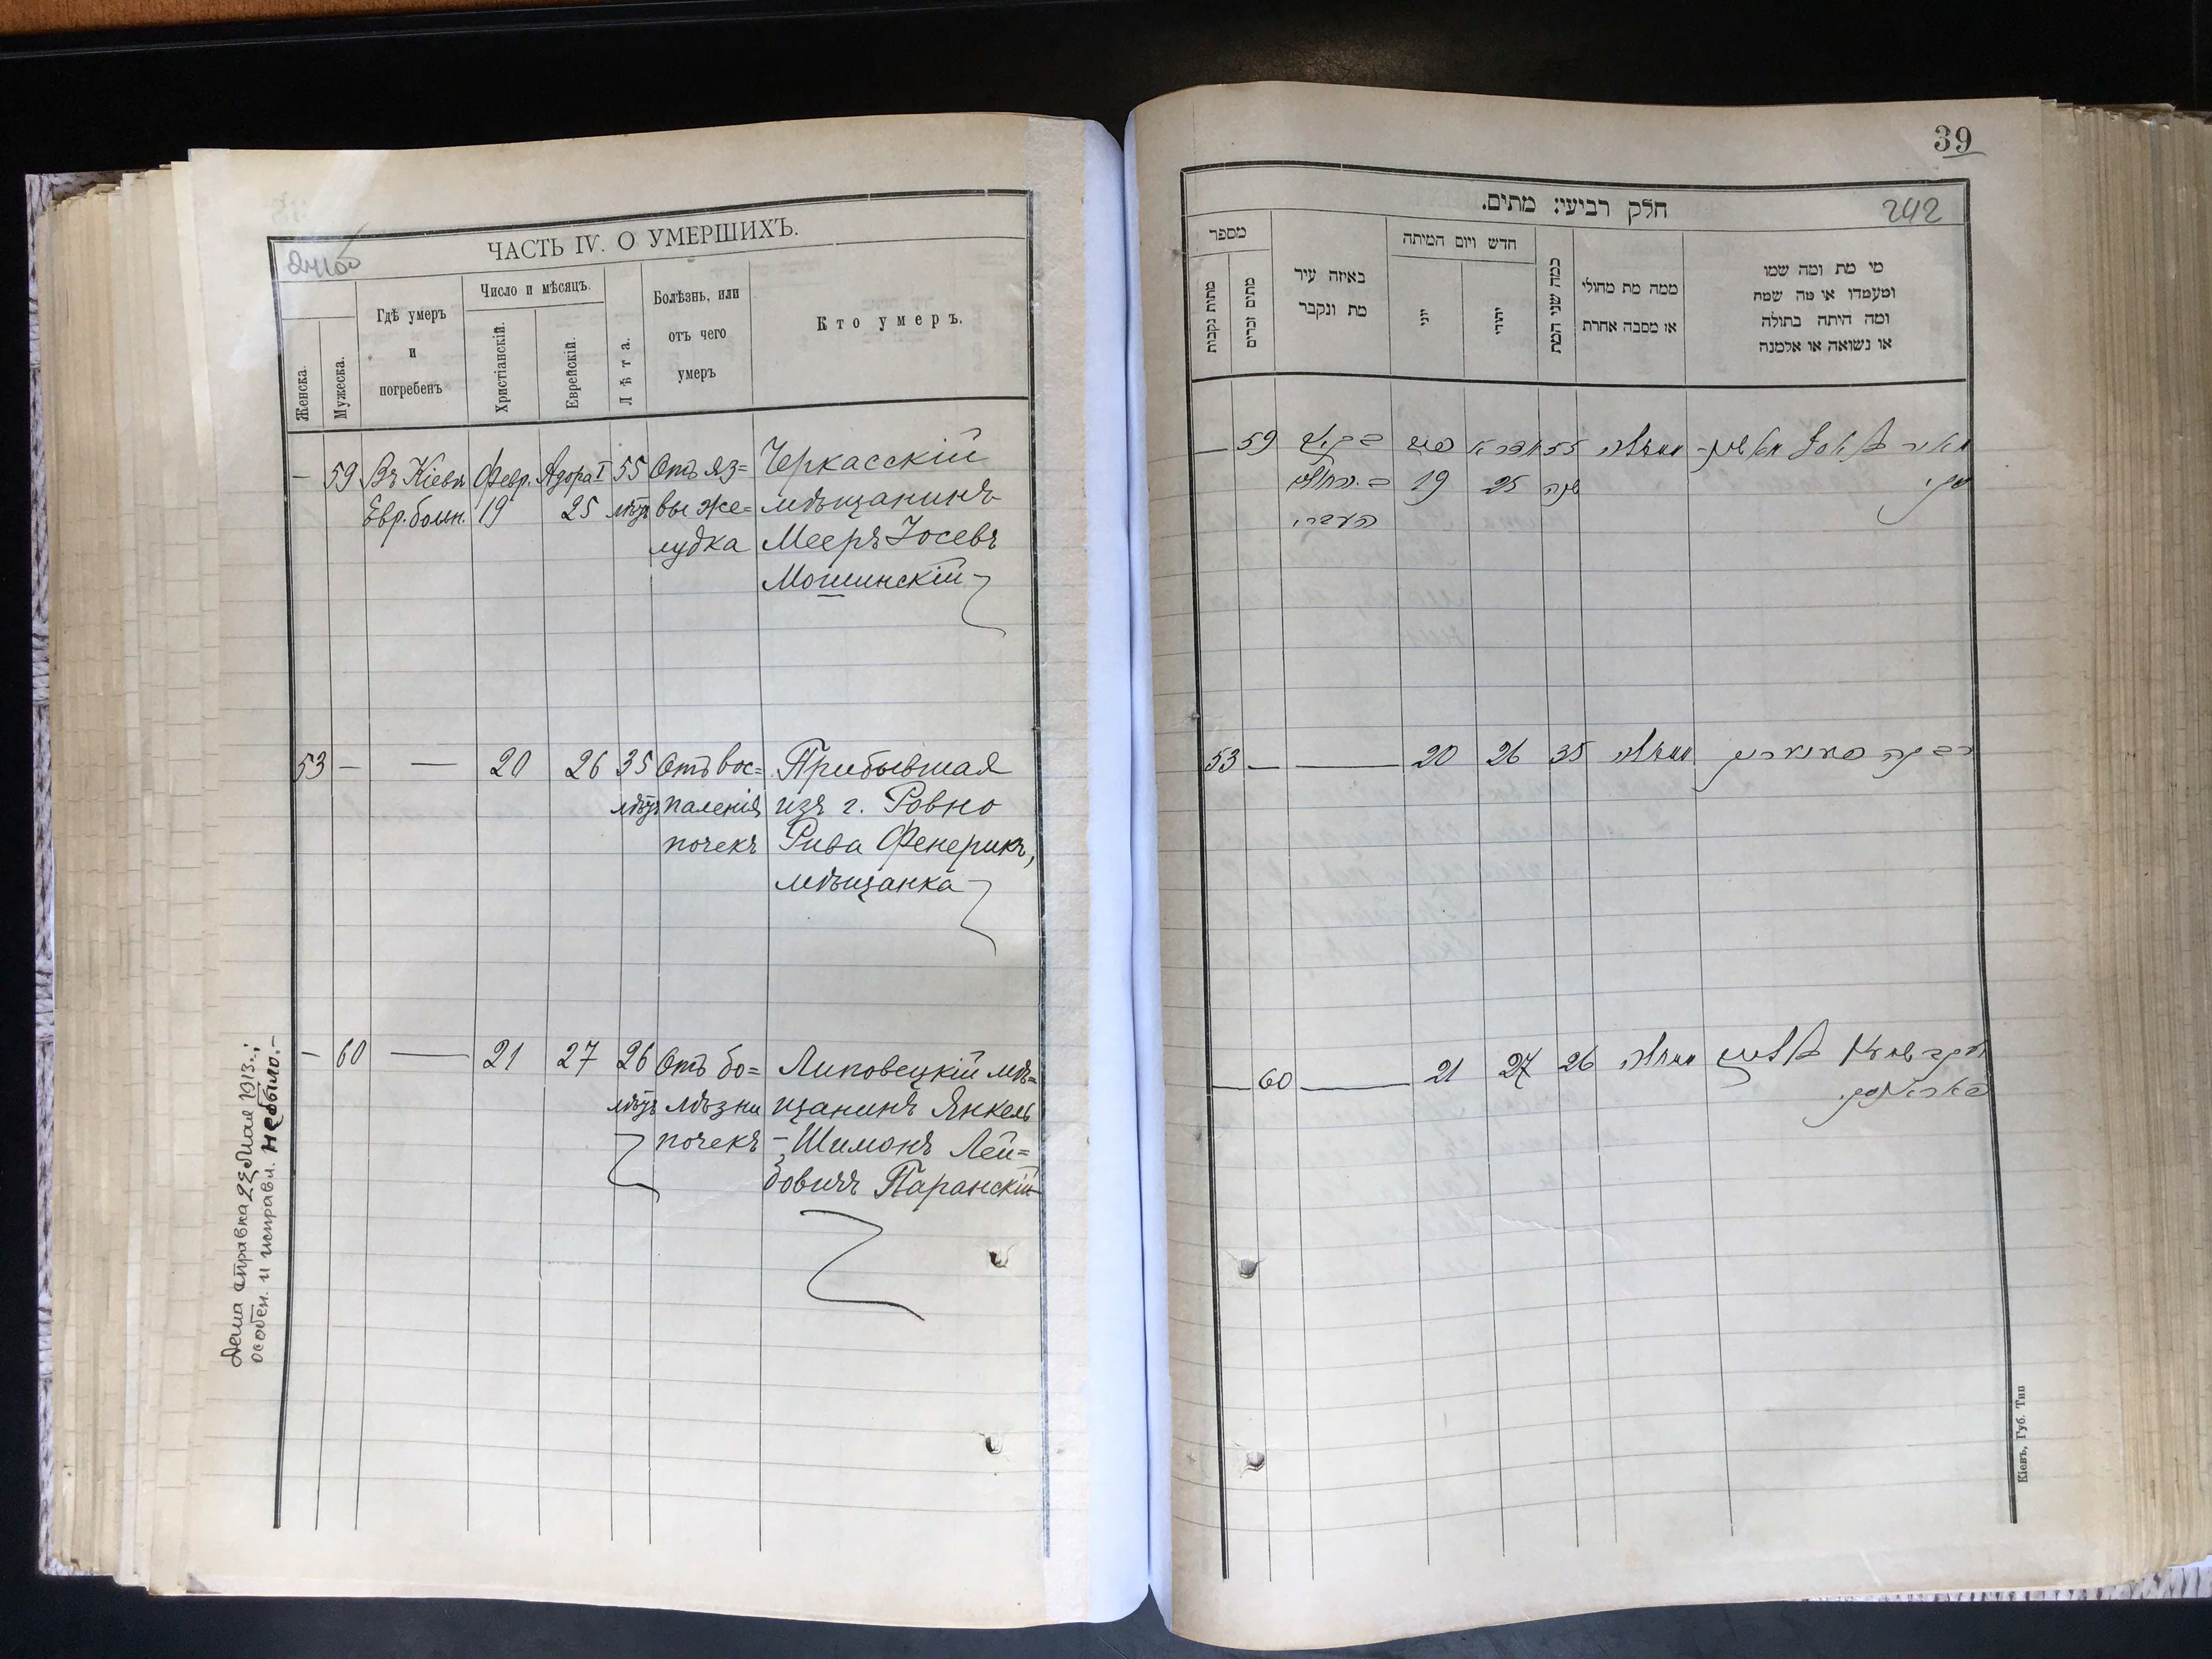 ЧАСТЬ IV. О УМЕРШИХЪ.
Женска.
Мужеска.
Гдѣ умеръ
и
погребенъ
Число и мѣсяцъ.
Христіанскій.
Еврейскій.
Лѣта.
Болѣзнь, или
отъ чего
умеръ
Кто умеръ.
— 59 Въ Кіевѣ Февр. Адора I 55 Отъ яз= Черкасскій
Евр. больн. 19 25 лѣтъ вы же= мѣщанинъ
лудка Мееръ Іосевъ
Мошинскій
53 — — 20 26 35 Отъ вос= Прибывшая
лѣтъ паленія изъ г. Ровно
почекъ Рива Фенерикъ,
мѣщанка
— 60 — 21 27 26 Отъ бо= Липовецкій мѣ=
лѣтъ лѣзни щанинъ Янкель
почекъ —Шимонъ Лей=
бовичъ Таранскій
справка 22 Мая 1913 г.;
особен. и исправл. не было.—
39
242
חלק רביעי: מתים.
מספר
מתות נקבות
מתים זכרים
באיזה עיר
מת ונקבר
חדש ויום המיתה
יוני
יהודי
כמה שני המת
ממה מת מחולי
או מסבה אחרת
מי מת ומה שמו
ומעמדו או מה שמת
ומה היתה בתולה
או נשואה או אלמנה
— 59 אדר א 55
19 25 שנה
העברי
53 — — 20 26 35 רבקה
— 60 — 21 27 26
Кіевъ, Губ. Тип